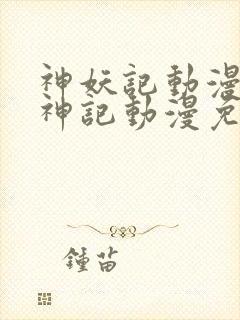 神妖記動漫
神記動漫免
鍾苗